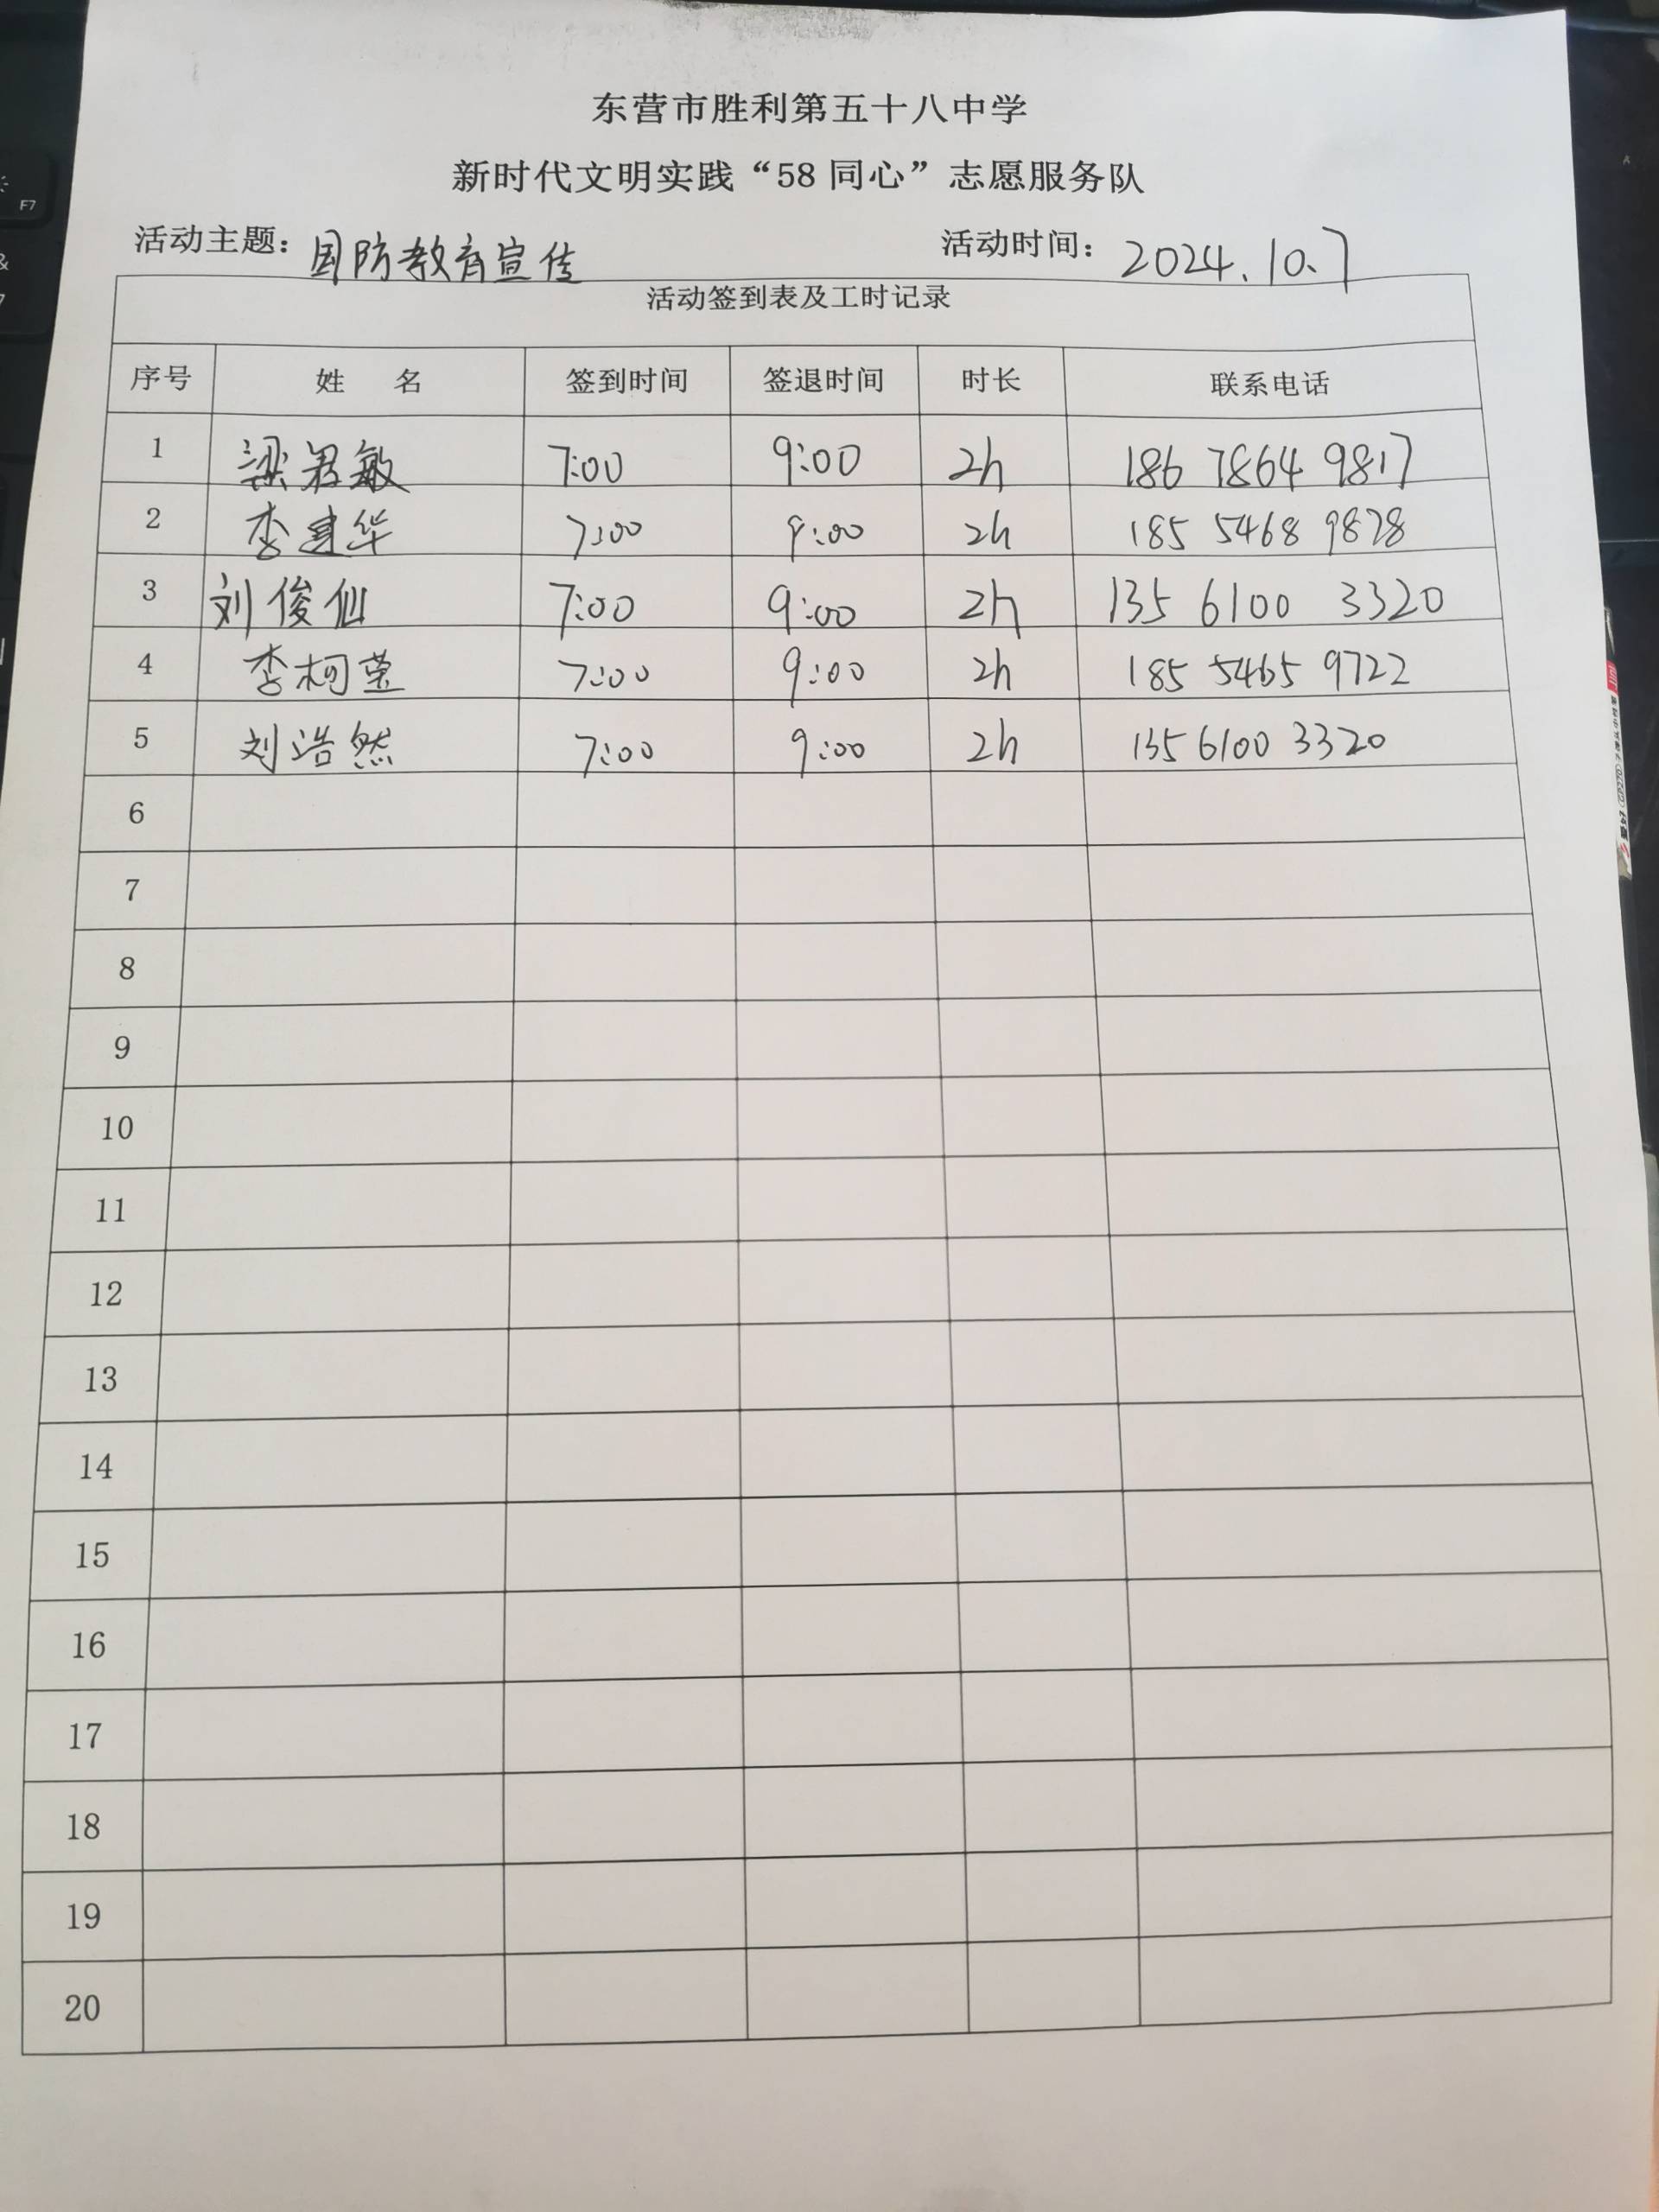 东营市胜利第五十八中学
新时代文明实践“58 同心”志愿服务队
活动主题：国防教育宣传 活动时间：2024.10.7
活动签到表及工时记录
序号 姓 名 签到时间 签退时间 时长 联系电话
1 梁君敏 7:00 9:00 2h 186 7864 9817
2 李建华 7:00 9:00 2h 185 5468 9828
3 刘俊仙 7:00 9:00 2h 135 6100 3320
4 李柯莹 7:00 9:00 2h 185 5465 9722
5 刘浩然 7:00 9:00 2h 135 6100 3320
6
7
8
9
10
11
12
13
14
15
16
17
18
19
20
F7
&
7